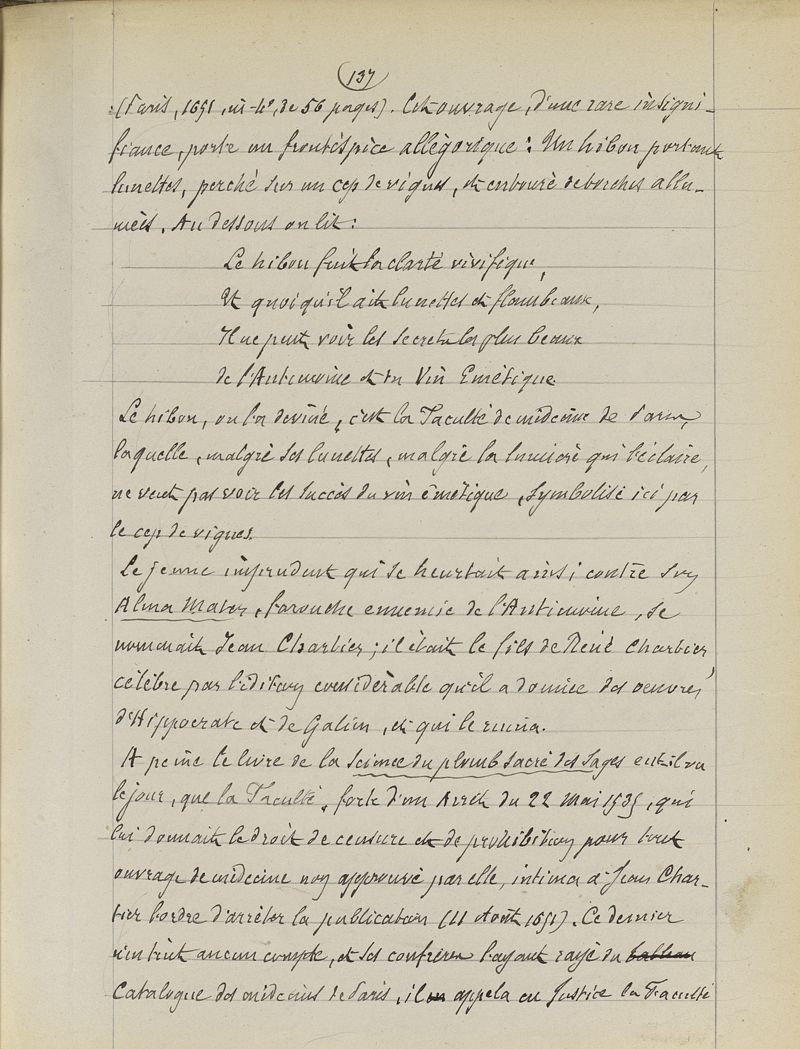 137
(Paris, 1651, in-4°, de 56 pages). Cet ouvrage, d'une rare insigni-
fiance, porte un frontispice allégorique : Un hibou portant
lunettes, perché sur un cep de vignes, et entouré de torches allu-
mées. Au dessous on lit :
Le hibou fuit la clarté vivifique,
Et quoiqu'il ait lunettes et flambeaux,
Il ne peut voir les secrets les plus beaux
de l'Antimoine et du Vin Emétique.
Le hibou, on l'a deviné, c'est la Faculté de médecine de Paris,
laquelle, malgré ses lunettes, malgré la lumière qui l'éclaire,
ne veut pas voir les succès du vin émétique, symbolisé ici par
le cep de vignes.
Le jeune imprudent qui se heurtait ainsi contre son
Alma Mater, farouche ennemie de l'Antimoine, se
nommait Jean Chartier ; il était le fils de René Chartier,
célèbre par l'édition considérable qu'il a donnée des oeuvres
d'Hippocrate et de Galien, et qui le ruina.
A peine le livre de la Science du plomb sacré des Sages eut-il vu
le jour, que la Faculté, forte d'un Arrêt du 22 Mai 1535, qui
lui donnait le droit de censure et de prohibition pour tout
ouvrage de médecine non approuvé par elle, intima à Jean Char-
tier l'ordre d'arrêter la publication (11 Août 1651). Ce dernier
n'en tint aucun compte, et ses confrères l'ayant rayé du tableau
Catalogue des médecins de Paris, il en appela en Justice la Faculté